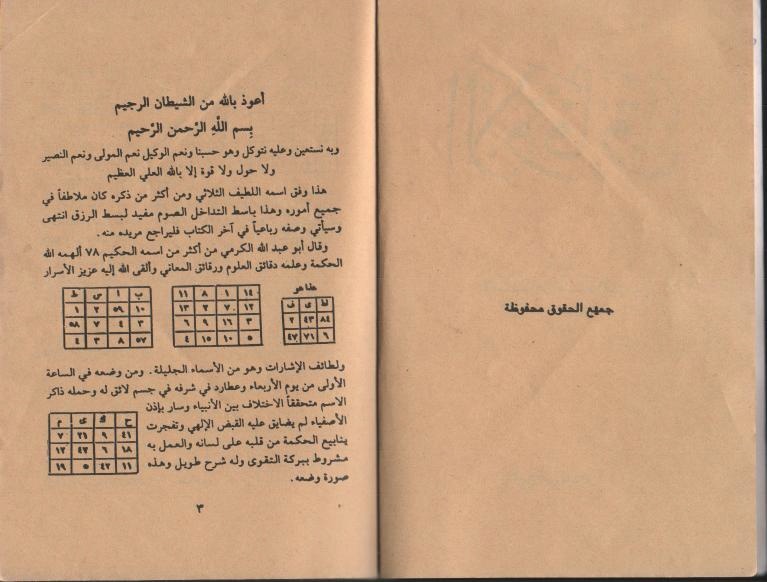 جميع الحقوق محفوظة
أعوذ بالله من الشيطان الرجيم
بِسم اللَّهِ الرَّحمن الرَّحيم
وبه نستعين وعليه نتوكل وهو حسبنا ونعم الوكيل نعم المولى ونعم النصير
ولا حول ولا قوة إلا بالله العلي العظيم
هذا وفق اسمه اللطيف الثلاثي ومن أكثر من ذكره كان ملاطفاً في
جميع أموره وهذا باسط التداخل الصوم مفيد لبسط الرزق انتهى
وسيأتي وصفه رباعياً في آخر الكتاب فليراجع مريده منه .
وقال أبو عبد الله الكرمي من أكثر من اسمه الحكيم ٧٨ ألهمه الله
الحكمة وعلمه دقائق العلوم ورقائق المعاني وألقى الله إليه عزيز الأسرار
طاهو
لط ى ف
٨٤ ٤٣ ٢
٦ ٧١ ٤٧
١٤ ١ ٨ ١١
١٢ ٧ ٢ ١٣
٣ ١٦ ٩ ٦
٥ ١٠ ١٥ ٤
ب ا س ط
١٠ ٥٩ ٢ ١
٣ ٤ ٧ ٥٨
٥٧ ٨ ٣ ٤
ولطائف الإشارات وهو من الأسماء الجليلة . ومن وضعه في الساعة
الأولى من يوم الأربعاء وعطارد في شرفه في جسم لائق له وحمله ذاكر
الاسم متحققاً الاختلاف بين الأنبياء وسار بإذن
الأصفياء لم يضايق عليه القبض الإلهي وتفجرت
ينابيع الحكمة من قلبه على لسانه والعمل به
مشروط ببركة التقوى وله شرح طويل وهذه
صورة وضعه .
ح ك ى م
٤١ ٩ ٢١ ٧
١٨ ٦ ٤٢ ١٢
١١ ٤٣ ٥ ١٩
٣